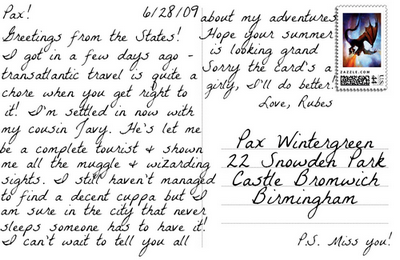 Pax! 6/28/09
Greetings from the States!
I got in a few days ago -
transatlantic travel is quite a
chore when you get right to
it! I'm settled in now with
my cousin Javy. He's let me
be a complete tourist & shown
me all the muggle & wizarding
sights. I still haven't managed
to find a decent cuppa but I
am sure in the city that never
sleeps someone has to have it!
I can't wait to tell you all
about my adventures
Hope your summer
is looking grand
Sorry the card's a
girly, I'll do better!
Love, Rubes
ZAZZLE.COM
Pax Wintergreen
22 Snowden Park
Castle Bromwich
Birmingham
P.S. Miss you!